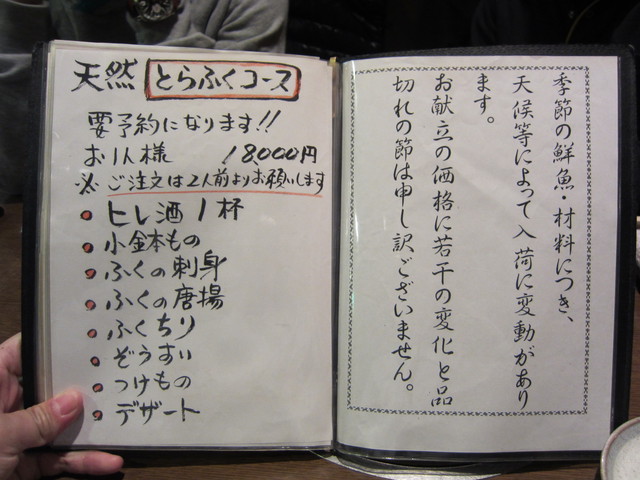 天然 とらふくコース
要予約になります!!
お1人様 18000円
※ご注文は2人前よりお願いします
ヒレ酒1杯
小鉢もの
ふくの刺身
ふくの唐揚
ふくちり
ぞうすい
つけもの
デザート
季節の鮮魚・材料につき、
天候等によって入荷に変動があり
ます。
お献立の価格に若干の変化と品
切れの節は申し訳ございません。